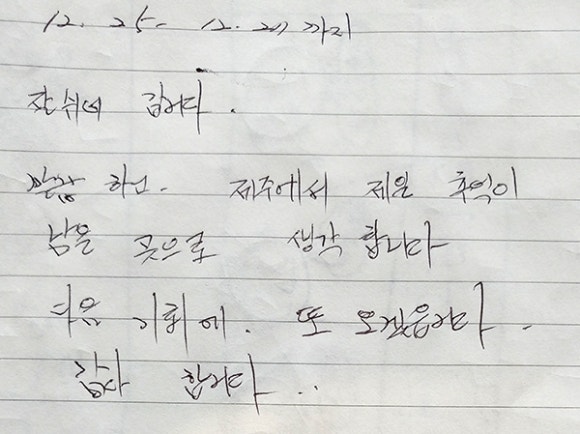 12. 25 - 12. 27 까지
잘 쉬다 갑니다.
하던. 제주에서 제일 추억이
남을 곳으로 생각 합니다
다음 기회에. 또 오겠읍니다.
감사 합니다..